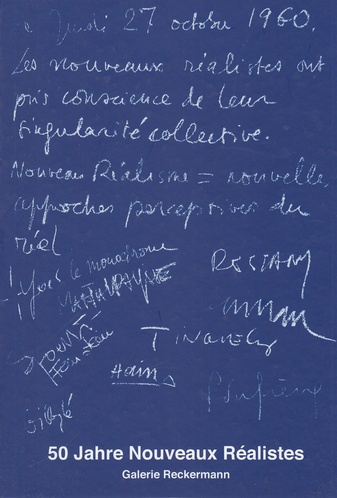 Jeudi 27 octobre 1960.
Les nouveaux réalistes ont
pris conscience de leur
singularité collective.
Nouveau Réalisme = nouvelles
approches perceptives du
réel
Yves le monochrome
RESTANY
TINGUELY
Hains
50 Jahre Nouveaux Réalistes
Galerie Reckermann